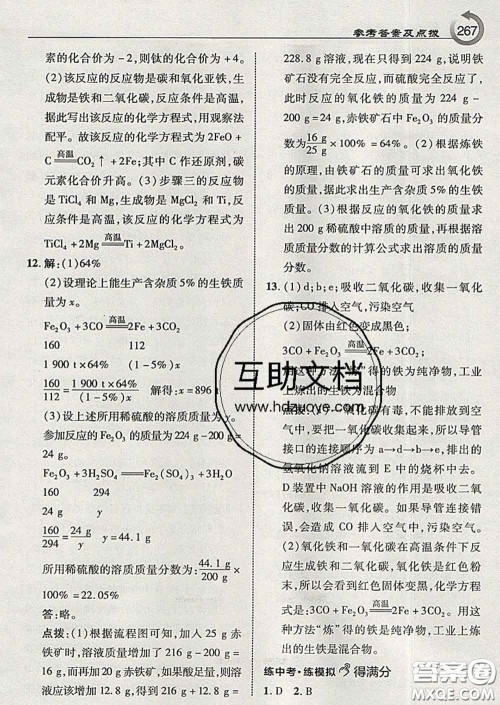 参考答案及点拨 267
素的化合价为-2，则钛的化合价为+4。
(2)该反应的反应物是碳和氧化亚铁，生
成物是铁和二氧化碳，反应条件是高温，
据此写出该反应的化学方程式，用观察法
配平。故该反应的化学方程式为2FeO
+C 高温 CO₂↑+2Fe；其中C作还原剂，碳
元素化合价升高。(3)步骤三的反应物
是TiCl₄和Mg，生成物是MgCl₂和Ti，反
应条件是高温，该反应的化学方程式为
TiCl₄+2Mg 高温 Ti+2MgCl₂
12. 解：(1)64%
(2)设理论上能生产含杂质5%的生铁质
量为x。
Fe₂O₃+3CO 高温 2Fe+3CO₂
160 112
1 900 t×64% (1-5%)x
160/112=1 900 t×64%/(1-5%)x 解得：x=896 t
(3)设上述所用稀硫酸的溶质质量为y。
参加反应的Fe₂O₃的质量为224 g-200 g=
24 g
Fe₂O₃+3H₂SO₄══Fe₂(SO₄)₃+3H₂O
160 294
24 g y
160/294=24 g/y y=44.1 g
所用稀硫酸的溶质质量分数为：44.1 g/200 g×
100%=22.05%
答：略。
点拨：(1)根据流程图可知，加入25 g赤
铁矿时，溶液质量增加了216 g-200 g=
16 g，而再加20 g赤铁矿，若氧化铁足量，则
溶液应该增加12.8 g，得到216 g+12.8 g=
228.8 g溶液，现在只得到224 g，说明铁
矿石没有完全反应，而硫酸完全反应了，
因此反应的氧化铁的质量为224 g-
200 g=24 g，赤铁矿中Fe₂O₃的质量分
数为：16 g/25 g×100%=64%。(2)根据炼铁
的原理，由铁矿石的质量和氧化铁的质量
分数，据此求出生产含杂质5%的生铁质
量。(3)根据反应的氧化铁的质量求出
溶液中溶质的质量，再根据溶液中溶质质
量分数的计算公式求出溶质的质量
分数。
13. (1)d；b；e；吸收二氧化碳，收集一氧化
碳；CO排入空气，污染空气
(2)固体由红色变成黑色；
3CO+Fe₂O₃ 高温 2Fe+3CO₂；
用这种方法“炼”得的铁为纯净物，工业
上炼出的生铁为混合物
点拨：(1)一氧化碳有毒，不能排放到空
气中，要把一氧化碳收集起来，所以导管
接口的连接顺序为a→d→b→e，排出的
氢氧化钠溶液流到E中的烧杯中去。
D装置中NaOH溶液的作用是吸收二氧
化碳，收集一氧化碳。如果导管连接错
误，会造成CO排入空气中，污染空气。
(2)氧化铁和一氧化碳在高温条件下反
应生成铁和二氧化碳，氧化铁是红色粉
末，所以会看到红色固体变黑，化学方程
式为3CO+Fe₂O₃ 高温 2Fe+3CO₂。用这
种方法“炼”得的铁是纯净物，工业上炼
出的生铁是混合物。
练中考·练模拟 得满分
1. D 2. B
互助文档
www.hdzuoye.com
作业精灵
MXQE.COM